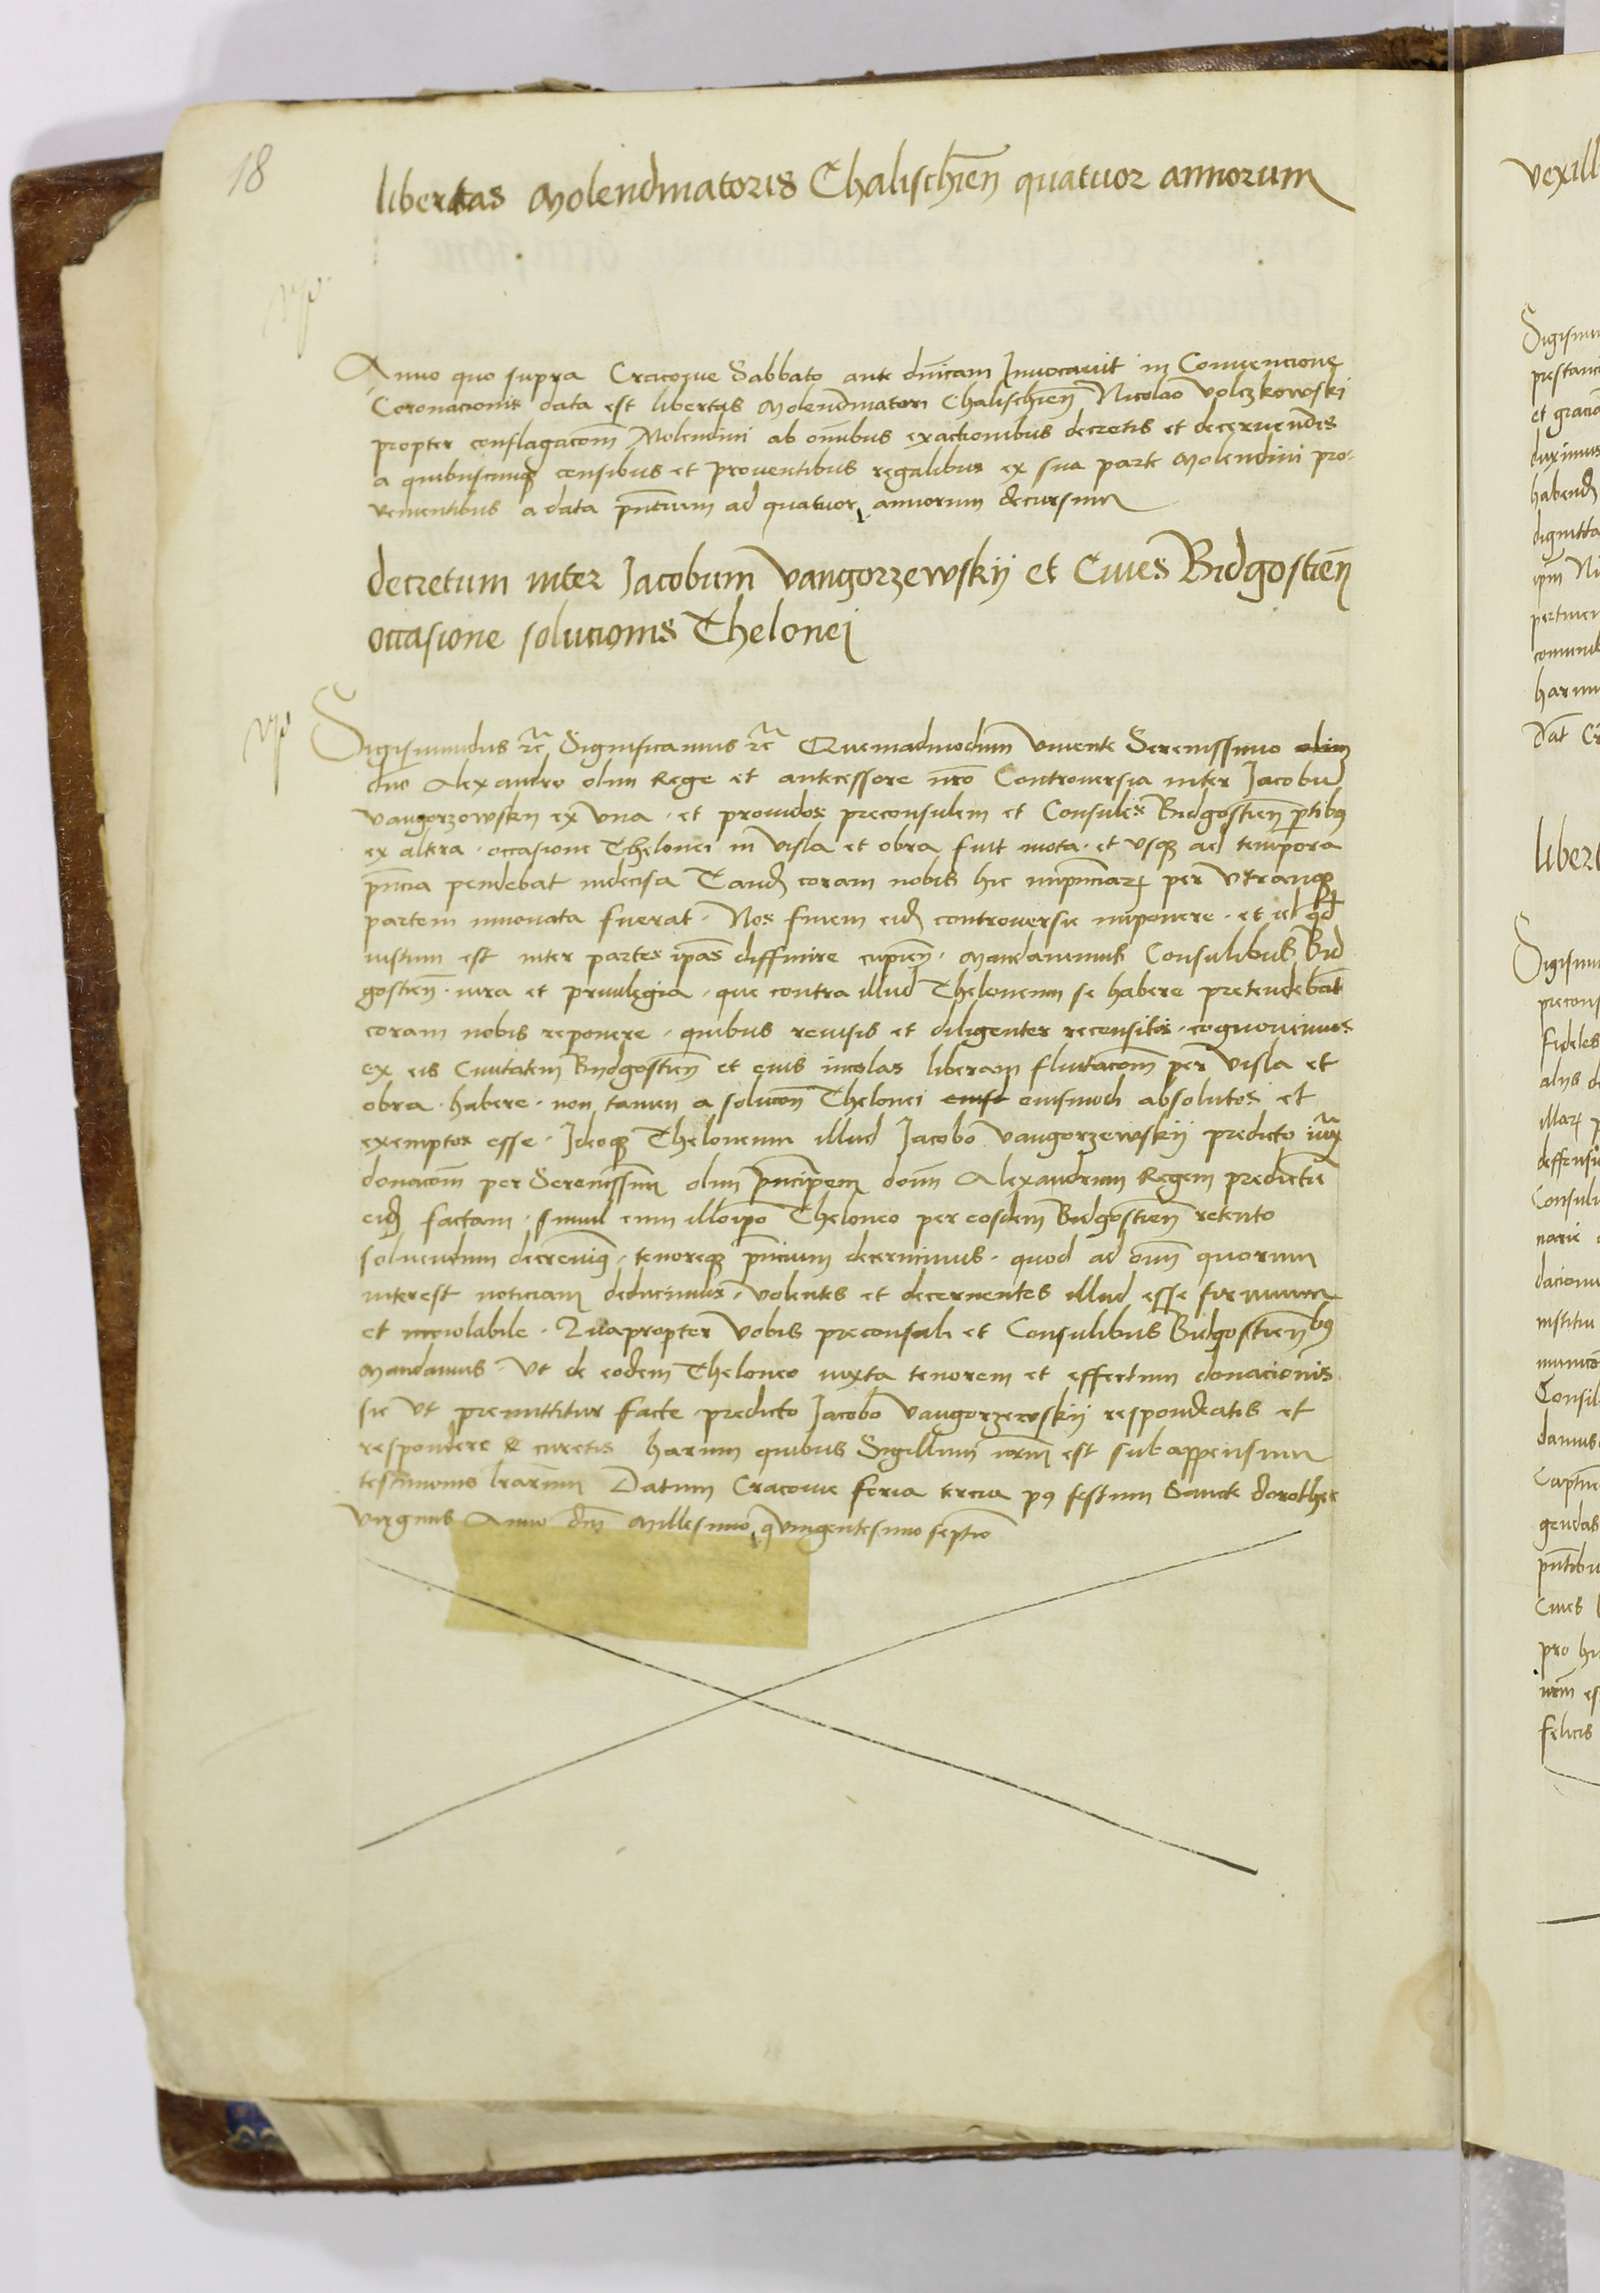 18
libertas Molendinatoris Chalischien quatuor annorum
Anno quo supra Cracovie Sabbato ante dnicam Invocavit in Convencione
Coronacionis data est libertas Molendinatori Chalischien Nicolao Volczkowski
propter conflagacom Molendini ab omibus exactionibus decretis et decernendis
a quibuscunq censibus et proventibus regalibus ex sua parte Molendini pro-
venientibus a data pntium ad quatuor annorum decursum
decretum inter Jacobum Vangorzewskij et Cives Bidgostien
occasione solucionis Thelonei
Sigismundus rc Significamus rc Quemadmodum vivente Serenissimo olim
dno Alexandro olim Rege et antecessore nro Controversia inter Jacobu
Vangorzowskij ex una · et providos preconsulem et Consules Bidgostien ptibus
ex altera · occasione Thelonei in Visla et obra fuit mota · et usq ad tempora
pncia pendebat indecisa Tand coram nobis hic inpnciar per utranq
partem innovata fuerat · Nos finem eid controversie inponere · et id qd
iustum est inter partes ipas diffinire cupien · mandavimus Consulibus Bid
gostien · iura et privilegia · que contra illud Theloneum se habere pretendebat
coram nobis reponere · quibus revisis et diligenter recensitis · cognovimus
ex eis Civitatem Bydgostien et eius incolas liberam fluitacom per Visla et
obra · habere · non tamen a solucon Thelonei eiusd eiusmodi absolutos et
exemptos esse · Ideoq Theloneum illud Jacobo Vangorzewskij predicto iux
donacom per Serenissim olim pncipem dom Alexandrum Regem predictu
eid factam · simul cum illo ipo Theloneo per eosdem Bidgostien retento
solvendum decrevimus · tenoreq pncium decernimus · quod ad oim quorum
interest noticiam deducimus · volentes et decernentes illud esse firmum
et inviolabile · Quapropter Vobis preconsuli et Consulibus Bidgostienbus
Mandamus · Ut de eodem Theloneo iuxta tenorem et effectum donacionis
sic ut premittitur facte predicto Jacobo Vangorzewskij respondeatis et
respondere curetis harum quibus Sigillum nrm est subappensum
testimonio lrarum Datum Cracovie feria tercia post festum Sancte dorothee
Virginis Anno dni Millesimo quingentesimo septio
vexill
Sigismu
prestanci
et gracia
duximus
habend
dignitta
ipm Ni
pertinen
harum
Dat Cr
libert
Sigismu
precons
fideles
alijs de
illar p
deffensi
Consuli
narie
dacionu
institu
Consil
damus
Captu
gendas
pntibu
Cives
pro hu
nrm es
felicis